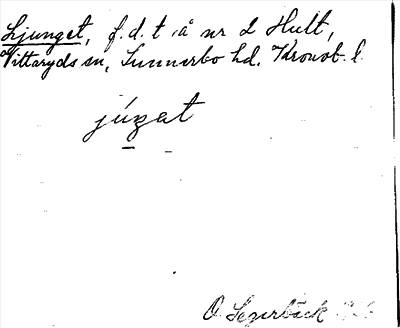 Ljunget, f.d. t. å nr 2 Hult,
Vittaryds sn, Sunnerbo hd. Kronob. l.
júŋat
O. Segerbäck